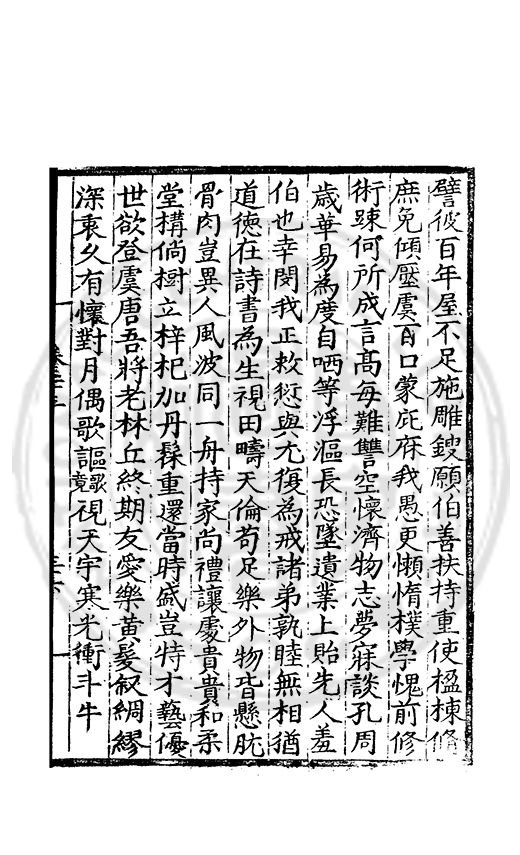 譬彼百年屋不足施雕鎪願伯善扶持重使楹棟脩
庶免傾壓虞百口蒙庇庥我愚更懶惰樸學愧前修
術踈何所成言髙每難讐空懷濟物志夢寐談孔周
歳華易為度自哂等浮漚長恐墜遺業上貽先人羞
伯也幸閔我正救愆與尤復為戒諸弟孰睦無相猶
道徳在詩書為生視田疇天倫苟足樂外物皆懸肬
骨肉豈異人風波同一舟持家尚禮讓處貴貴和柔
堂搆倘樹立梓杞加丹髹重還當時盛豈特才藝優
世欲登虞唐吾將老林丘終期友愛樂黄髮叙綢繆
深衷久有懷對月偶歌謳歌竟視天宇寒光衝斗牛